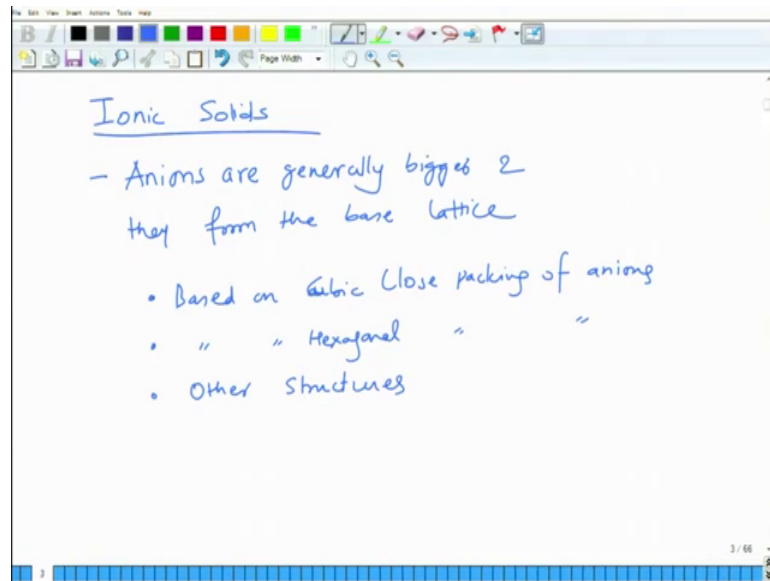 File Edit View Insert Actions Tools Help
B I
Page Width
Ionic Solids
- Anions are generally bigger &
they form the base lattice
• Based on Cubic Close packing of anions
• " " Hexagonal " "
• Other Structures
3 / 66
3